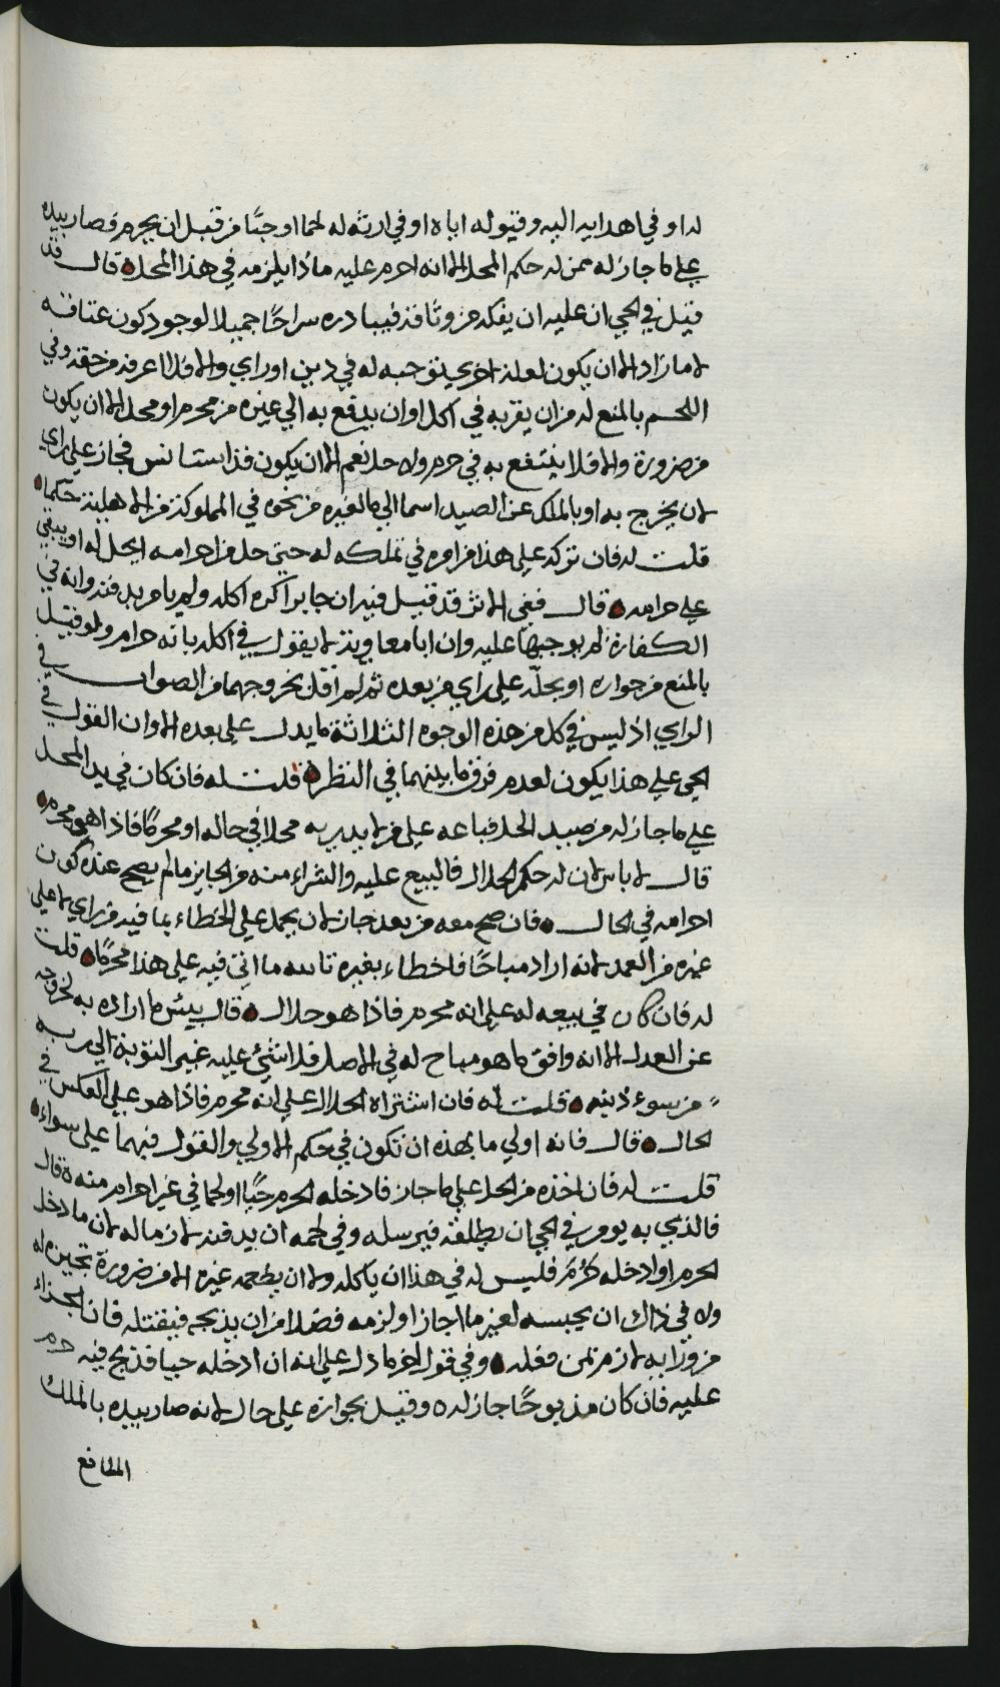 له او في اهدايه اليه وقبوله اياه او في ارثه له لحما او حيّا من قبل ان يحرم فصار بيده
على ما جاز له ممن له حكم المحل الا انه احرم عليه ماذا يلزمه في هذا المحل قال قد
قيل في الحي ان عليه ان يفكه من وثاقه فيبادره سراحًا جميلا لوجود كون عتاقه
لا ما زاد الا ان يكون لعلة اخرى يتوجه له في دين او راي والا فلا اعرفه من حقه وفي
اللحم بالمنع له من ان يقربه في اكل او ان يدفع به الي غيره من محرم او محل الا ان يكون
من ضرورة والا فلا ينتفع به في حرم ولا حل نعم الا ان يكون قد استانس فجاز على راي
لان يخرج به او بالملك عن الصيد اسما الي ما لغيره من نحوه في المملوكة من الاهلية حكما
قلت له فان تركه على هذا من امره في تملكه له حتى حل من احرامه ايحل له او يبقي
على حرامه قال ففي الاثر قد قيل فيه ان جابرا كره اكله ولم يامر بدفنه وانه في
الكفارة لم يوجبها عليه وان ابا معاوية لا يقول في اكله بانه حرام ولو قيل
بالمنع من جوازه او بحلّه على راي من بعده ثم لم اقل بخروجهما من الصواب في
الراي اذ ليس في كل من هذه الوجوه الثلاثة ما يدل على بعده الا وان القول في
الحي على هذا يكون لعدم فرق ما بينهما في النظر قلت له فان كان في يد المحل
على ما جاز له من صيد الحل فباعه على من لا يدري به محلا في حاله او محرمًا فاذا هو محرم
قال لا باس لان له حكم الحلال فالبيع عليه والشراء منه من الجايز ما لم يصح عنده كون
احرامه في الحال فان صح معه من بعد جاز لان يحمل على الخطاء بما فيه من راي لا على
غيره من العمد لانه اراد مباحًا فاخطاء بغيره تا لله ما اتى فيه على هذا محرمًا قلت
له فان كان في بيعه له على انه محرم فاذا هو حلال قال بيس ما اراده به لخروجه
عن العدل الا انه وافق ما هو مباح له في الاصل فلا شيء عليه غير التوبة الي ربه
من سوء ذنبه قلت له فان اشتراه الحلال على انه محرم فاذا هو على العكس في
الحال قال فانه اولي ما بهذه ان تكون في حكم الاولي والقول فيهما على سواء
قلت له فان اخذه من الحل على ما جاز فادخله الحرم حيّا او لحما في غير احرام منه قال
فالذي به يومر في الحي ان يطلقه فيرسله وفي لحمه ان يدفنه لازما له لان ما دخل
الحرم او ادخله حُرّم فليس له في هذا ان ياكله ولا ان يطعمه غيره الا من ضرورة تجيزه له
ولا في ذاك ان يحبسه لغير ما اجاز او لزمه فضلا من ان يذبحه فيقتله فان الجزاء
من وزرا به لازم لمن فعله وفي قول اخر ما دل على انه ان ادخله حيا فذبح فيه حرم
عليه فان كان مذبوحًا جاز له وقيل بجوازه على حال لانه صار بيده بالملك